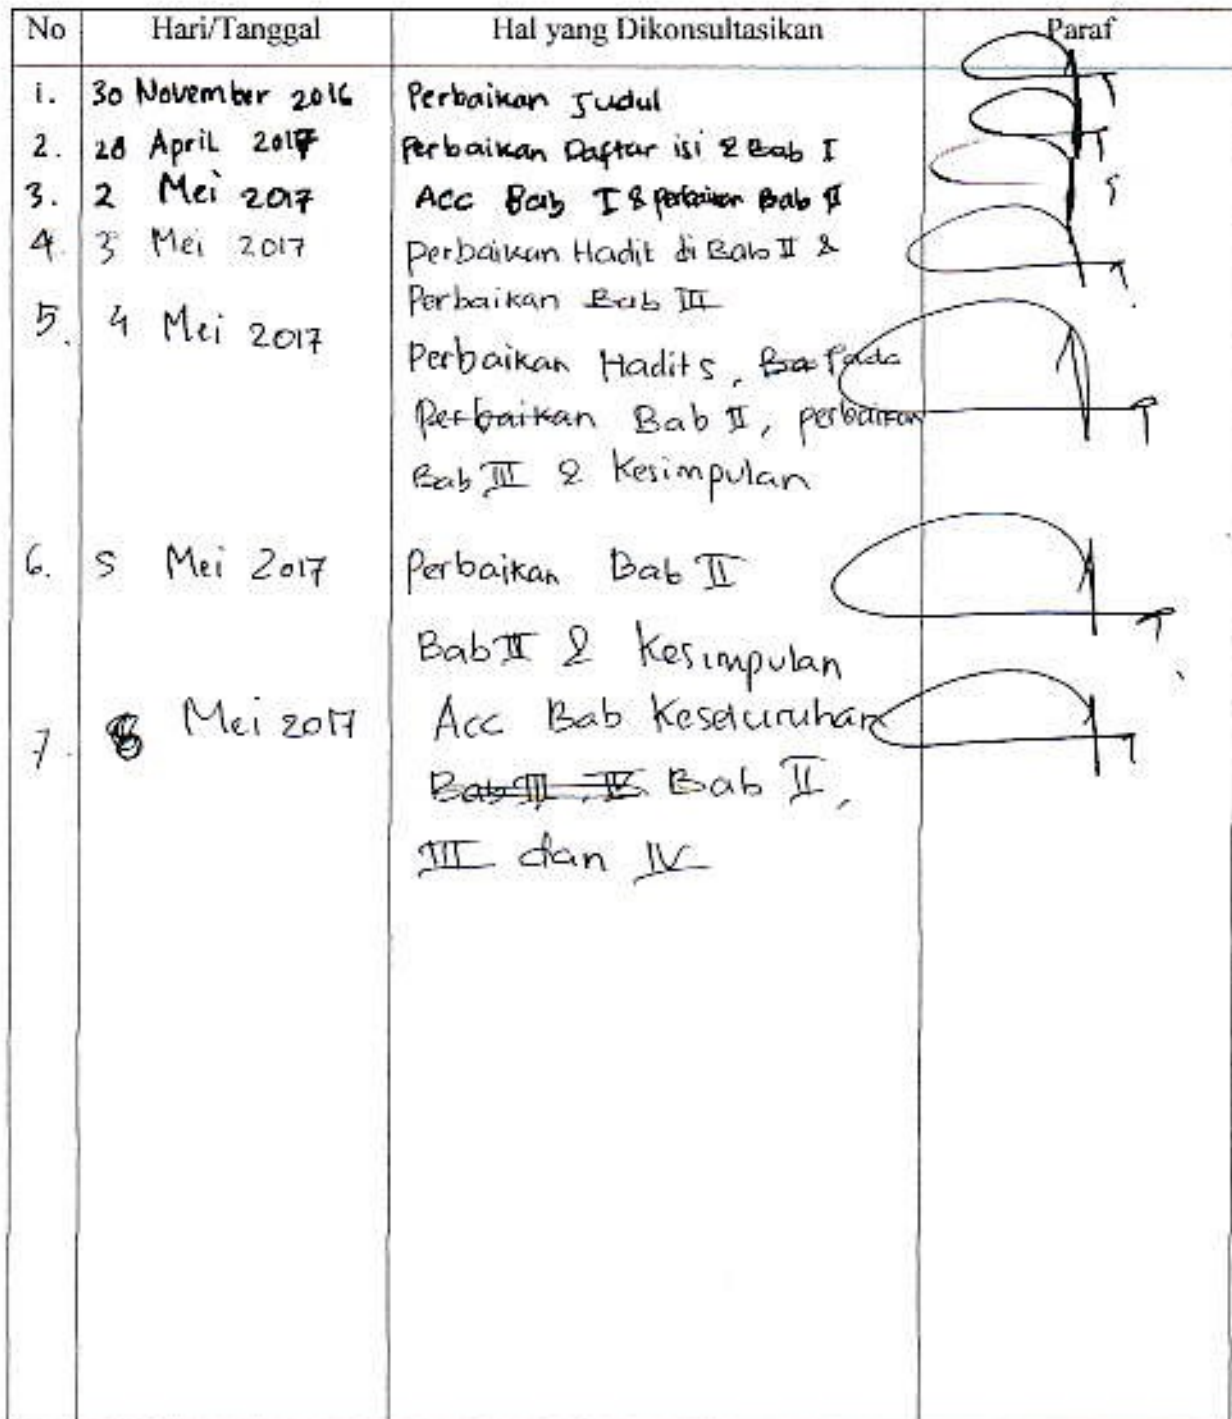 No Hari/Tanggal Hal yang Dikonsultasikan Paraf
1. 30 November 2016 Perbaikan Judul
2. 28 April 2017 Perbaikan Daftar isi & Bab I
3. 2 Mei 2017 Acc Bab I & perbaikan Bab II
4. 3 Mei 2017 Perbaikan Hadit di Bab II &
Perbaikan Bab III
5. 4 Mei 2017 Perbaikan Hadits, Ba Pada
Perbaikan Bab II, perbaikan
Bab III & Kesimpulan
6. 5 Mei 2017 Perbaikan Bab II
Bab II & Kesimpulan
7. 8 Mei 2017 Acc Bab Keseluruhan
Bab III, IV Bab II,
III dan IV